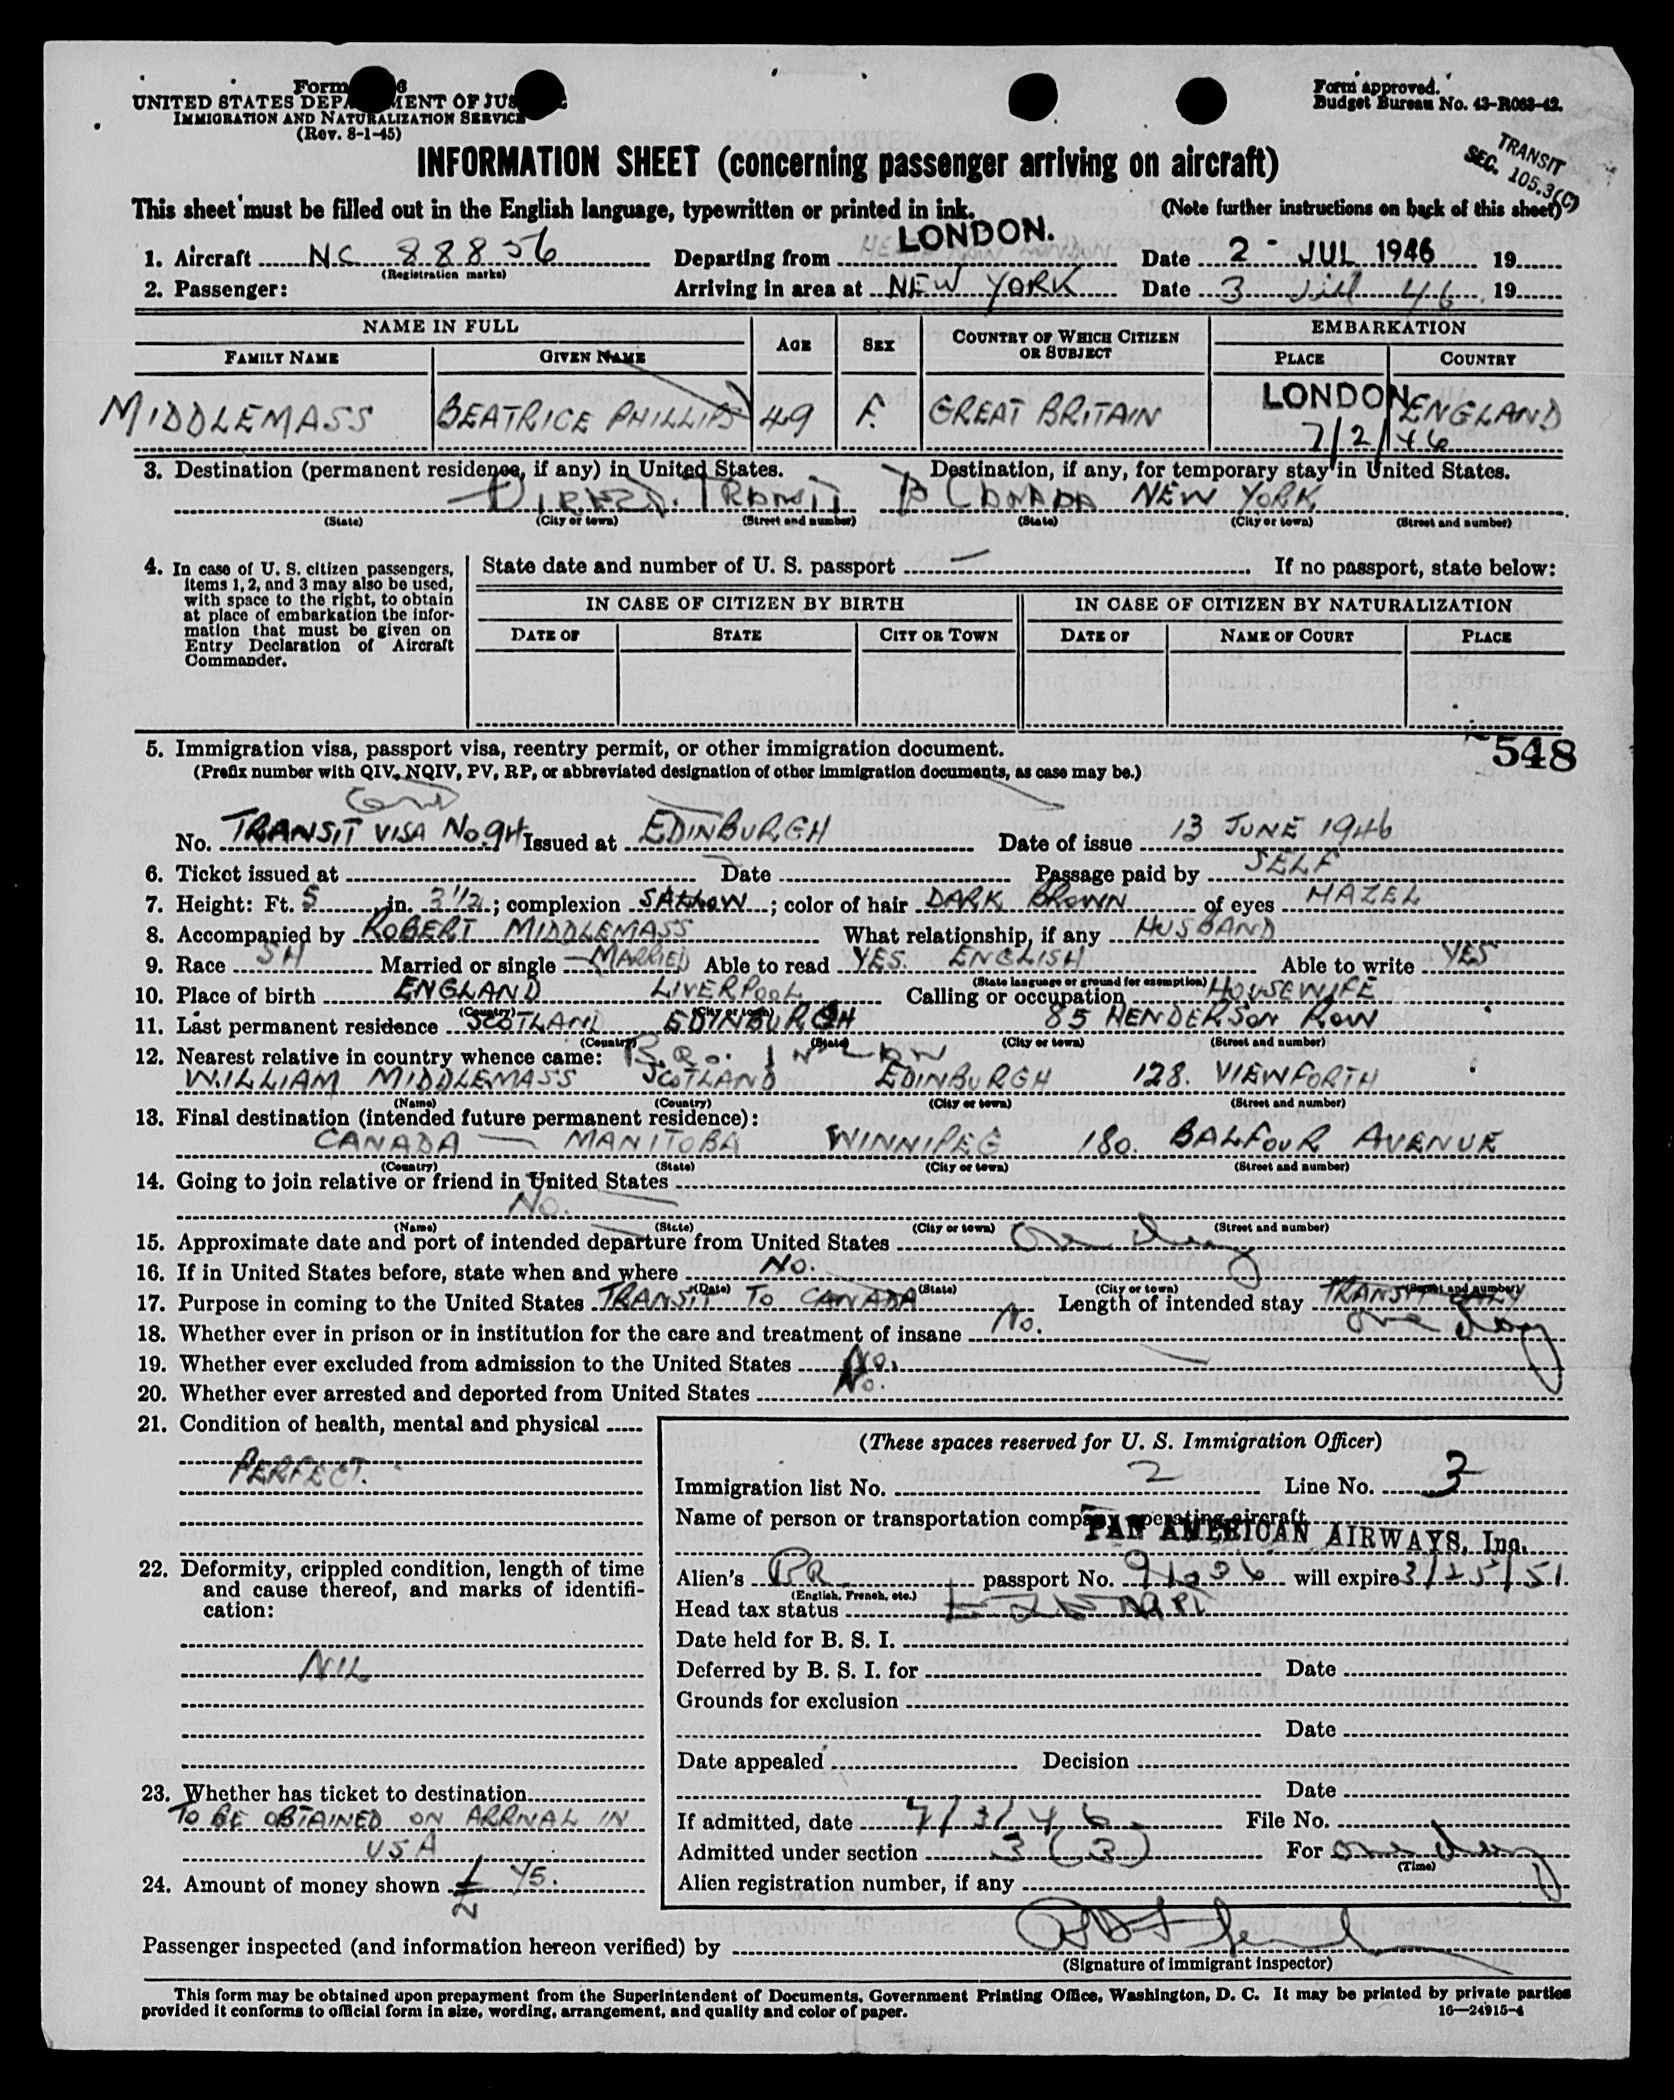 Form 6
UNITED STATES DEPA MENT OF JUS
IMMIGRATION AND NATURALIZATION SERVICE
(Rev. 8-1-45)
Form approved.
Budget Bureau No. 43-R063-42.
TRANSIT
SEC. 105.3(C)
INFORMATION SHEET (concerning passenger arriving on aircraft)
This sheet must be filled out in the English language, typewritten or printed in ink. (Note further instructions on back of this sheet)
1. Aircraft NC 88856 Departing from LONDON. Date 2 - JUL 1946 19
(Registration marks)
2. Passenger: Arriving in area at NEW YORK Date 3 Jul 46 19
NAME IN FULL AGE SEX COUNTRY OF WHICH CITIZEN OR SUBJECT EMBARKATION
FAMILY NAME GIVEN NAME PLACE COUNTRY
MIDDLEMASS BEATRICE PHILLIPS 49 F. GREAT BRITAIN LONDON ENGLAND
7/2/46
3. Destination (permanent residence, if any) in United States. Destination, if any, for temporary stay in United States.
DIRECT TRANSIT TO CANADA NEW YORK
(State) (City or town) (Street and number) (State) (City or town) (Street and number)
4. In case of U. S. citizen passengers, items 1, 2, and 3 may also be used, with space to the right, to obtain at place of embarkation the information that must be given on Entry Declaration of Aircraft Commander.
State date and number of U. S. passport — If no passport, state below:
IN CASE OF CITIZEN BY BIRTH IN CASE OF CITIZEN BY NATURALIZATION
DATE OF STATE CITY OR TOWN DATE OF NAME OF COURT PLACE
548
5. Immigration visa, passport visa, reentry permit, or other immigration document.
(Prefix number with QIV, NQIV, PV, RP, or abbreviated designation of other immigration documents, as case may be.)
No. TRANSIT VISA No. 94 Issued at EDINBURGH Date of issue 13 JUNE 1946
6. Ticket issued at Date Passage paid by SELF
7. Height: Ft. 5 in. 3 1/2; complexion SALLOW; color of hair DARK BROWN of eyes HAZEL
8. Accompanied by ROBERT MIDDLEMASS What relationship, if any HUSBAND
9. Race SH Married or single MARRIED Able to read YES. ENGLISH Able to write YES
(State language or ground for exemption)
10. Place of birth ENGLAND LIVERPOOL Calling or occupation HOUSEWIFE
(Country) (City or town)
11. Last permanent residence SCOTLAND EDINBURGH 85 HENDERSON ROW
(Country) (State) (City or town) (Street and number)
12. Nearest relative in country whence came: Bro. in Law
WILLIAM MIDDLEMASS SCOTLAND EDINBURGH 128. VIEWFORTH
(Name) (Country) (City or town) (Street and number)
13. Final destination (intended future permanent residence):
CANADA — MANITOBA WINNIPEG 180. BALFOUR AVENUE
(Country) (State) (City or town) (Street and number)
14. Going to join relative or friend in United States
No.
(Name) (State) (City or town) (Street and number)
15. Approximate date and port of intended departure from United States One day
16. If in United States before, state when and where No.
(Date) (State) (City or town) (Street and number)
17. Purpose in coming to the United States TRANSIT TO CANADA Length of intended stay TRANSIT ONLY
one day
18. Whether ever in prison or in institution for the care and treatment of insane No.
19. Whether ever excluded from admission to the United States No.
20. Whether ever arrested and deported from United States No.
21. Condition of health, mental and physical
PERFECT.
22. Deformity, crippled condition, length of time and cause thereof, and marks of identification:
NIL
23. Whether has ticket to destination
TO BE OBTAINED ON ARRIVAL IN
USA
24. Amount of money shown £ 45.
(These spaces reserved for U. S. Immigration Officer)
Immigration list No. 2 Line No. 3
Name of person or transportation company operating aircraft
PAN AMERICAN AIRWAYS, Inc.
Alien's BR. passport No. will expire 3/25/51.
(English, French, etc.)
Head tax status
Date held for B. S. I.
Deferred by B. S. I. for Date
Grounds for exclusion
Date
Date appealed Decision
Date
If admitted, date 7/3/46 File No.
Admitted under section 3 (3) For one day
(Time)
Alien registration number, if any
Passenger inspected (and information hereon verified) by
(Signature of immigrant inspector)
This form may be obtained upon prepayment from the Superintendent of Documents, Government Printing Office, Washington, D. C. It may be printed by private parties
provided it conforms to official form in size, wording, arrangement, and quality and color of paper. 16—24915-4